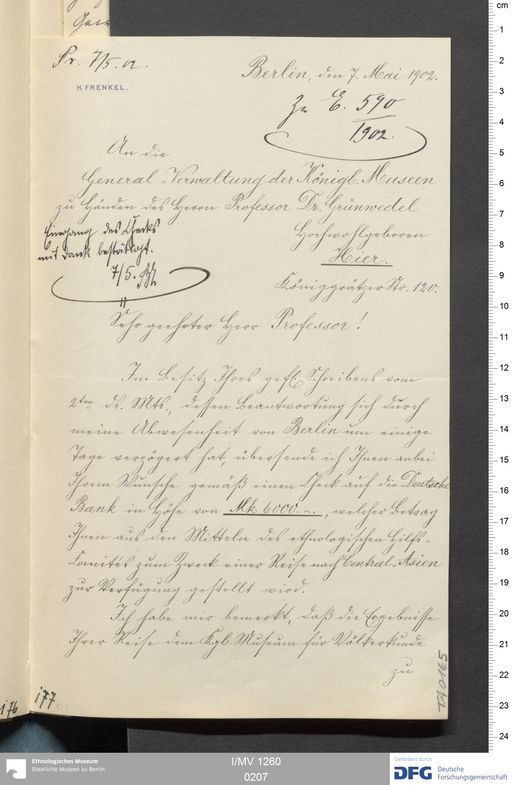 Pr. 7/5. 02.
H. FRENKEL.
Berlin, den 7. Mai 1902.
Zu E. 590
1902.
An die
General-Verwaltung der Königl. Museen
zu Händen des Herrn Professor Dr. Grünwedel
Hochwohlgeboren
Hier.
Königgrätzer Str. 120.
Eingang des Checks
mit Dank bestätigt.
7/5.
Sehr geehrter Herr Professor!
Im Besitz Ihres gefl. Schreibens vom
2ten ds. Mts., dessen Beantwortung sich durch
meine Abwesenheit von Berlin um einige
Tage verzögert hat, übersende ich Ihnen anbei
Ihrem Wunsche gemäß einen Check auf die Deutsche
Bank in Höhe von Mk. 6000.-., welcher Betrag
Ihnen aus den Mitteln des ethnologischen Hilfs-
Comités zum Zweck einer Reise nach Central-Asien
zur Verfügung gestellt wird.
Ich habe mir bemerkt, daß die Ergebnisse
Ihrer Reise dem Kgl. Museum für Völkerkunde
zu
176
177
TA 0165
Ethnologisches Museum
Staatliche Museen zu Berlin
I/MV 1260
0207
Gefördert durch
DFG Deutsche
Forschungsgemeinschaft
cm
1
2
3
4
5
6
7
8
9
10
11
12
13
14
15
16
17
18
19
20
21
22
23
24